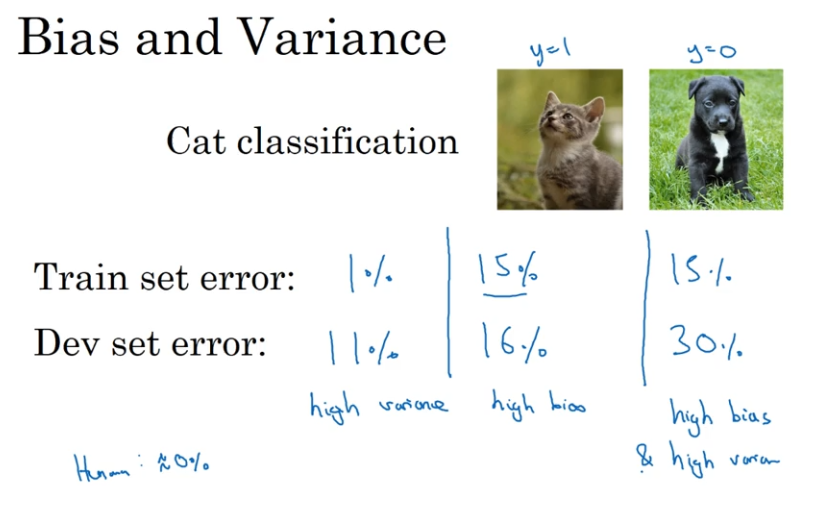 Bias and Variance
y=1 y=0
Cat classification
Train set error: 1% 15% 15%
Dev set error: 11% 16% 30%
high variance high bias high bias
& high varian
Human: ≈0%